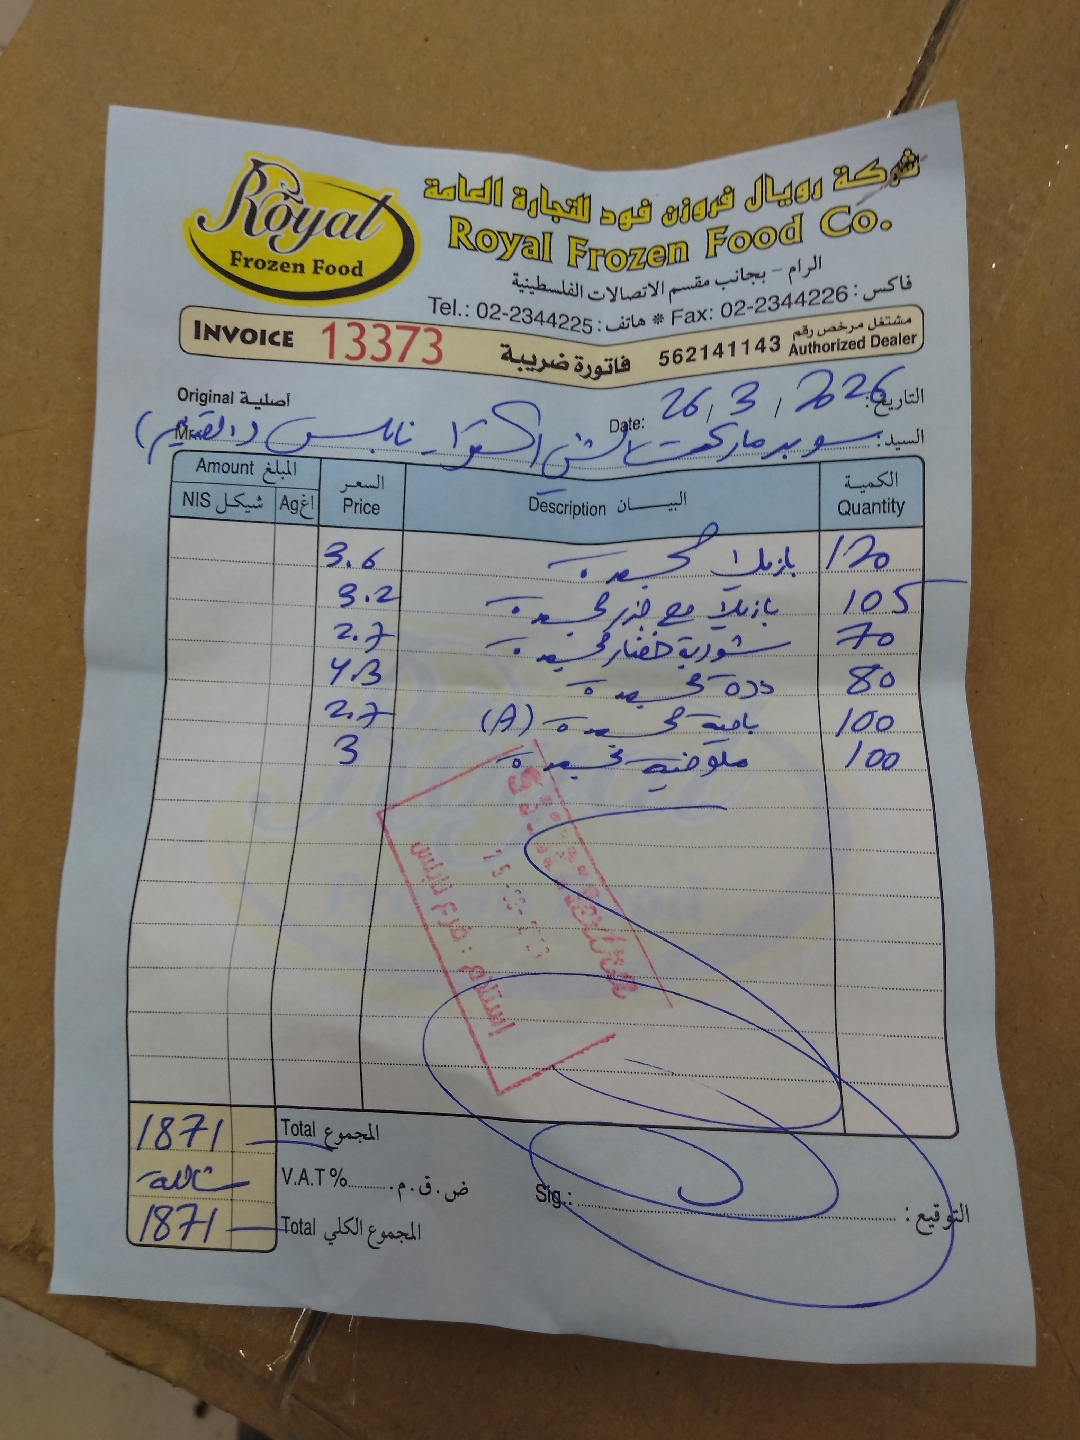 Royal
Frozen Food
شركة رويال فروزن فود للتجارة العامة
Royal Frozen Food Co.
الرام - بجانب مقسم الاتصالات الفلسطينية
Tel.: 02-2344225 : هاتف * Fax: 02-2344226 : فاكس
INVOICE 13373 فاتورة ضريبة 562141143 مشتغل مرخص رقم Authorized Dealer
Original أصلية
Date: 26/3/2026 التاريخ:
Mr. السيد: سوبر ماركت نابلس
Amount المبلغ
NIS شيكل
Ag اغ
السعر Price
Description البيان
الكمية Quantity
3.6 بازيلا مجمدة 120
3.2 بازيلا مع جزر مجمدة 105
2.7 شوربة خضار مجمدة 70
4.3 ذرة مجمدة 80
2.7 بامية مجمدة (A) 100
3 ملوخية مجمدة 100
استلام : فرع نابلس
1871 Total المجموع
شاملة V.A.T % ض.ق.م.
1871 Total المجموع الكلي
Sig.: التوقيع :